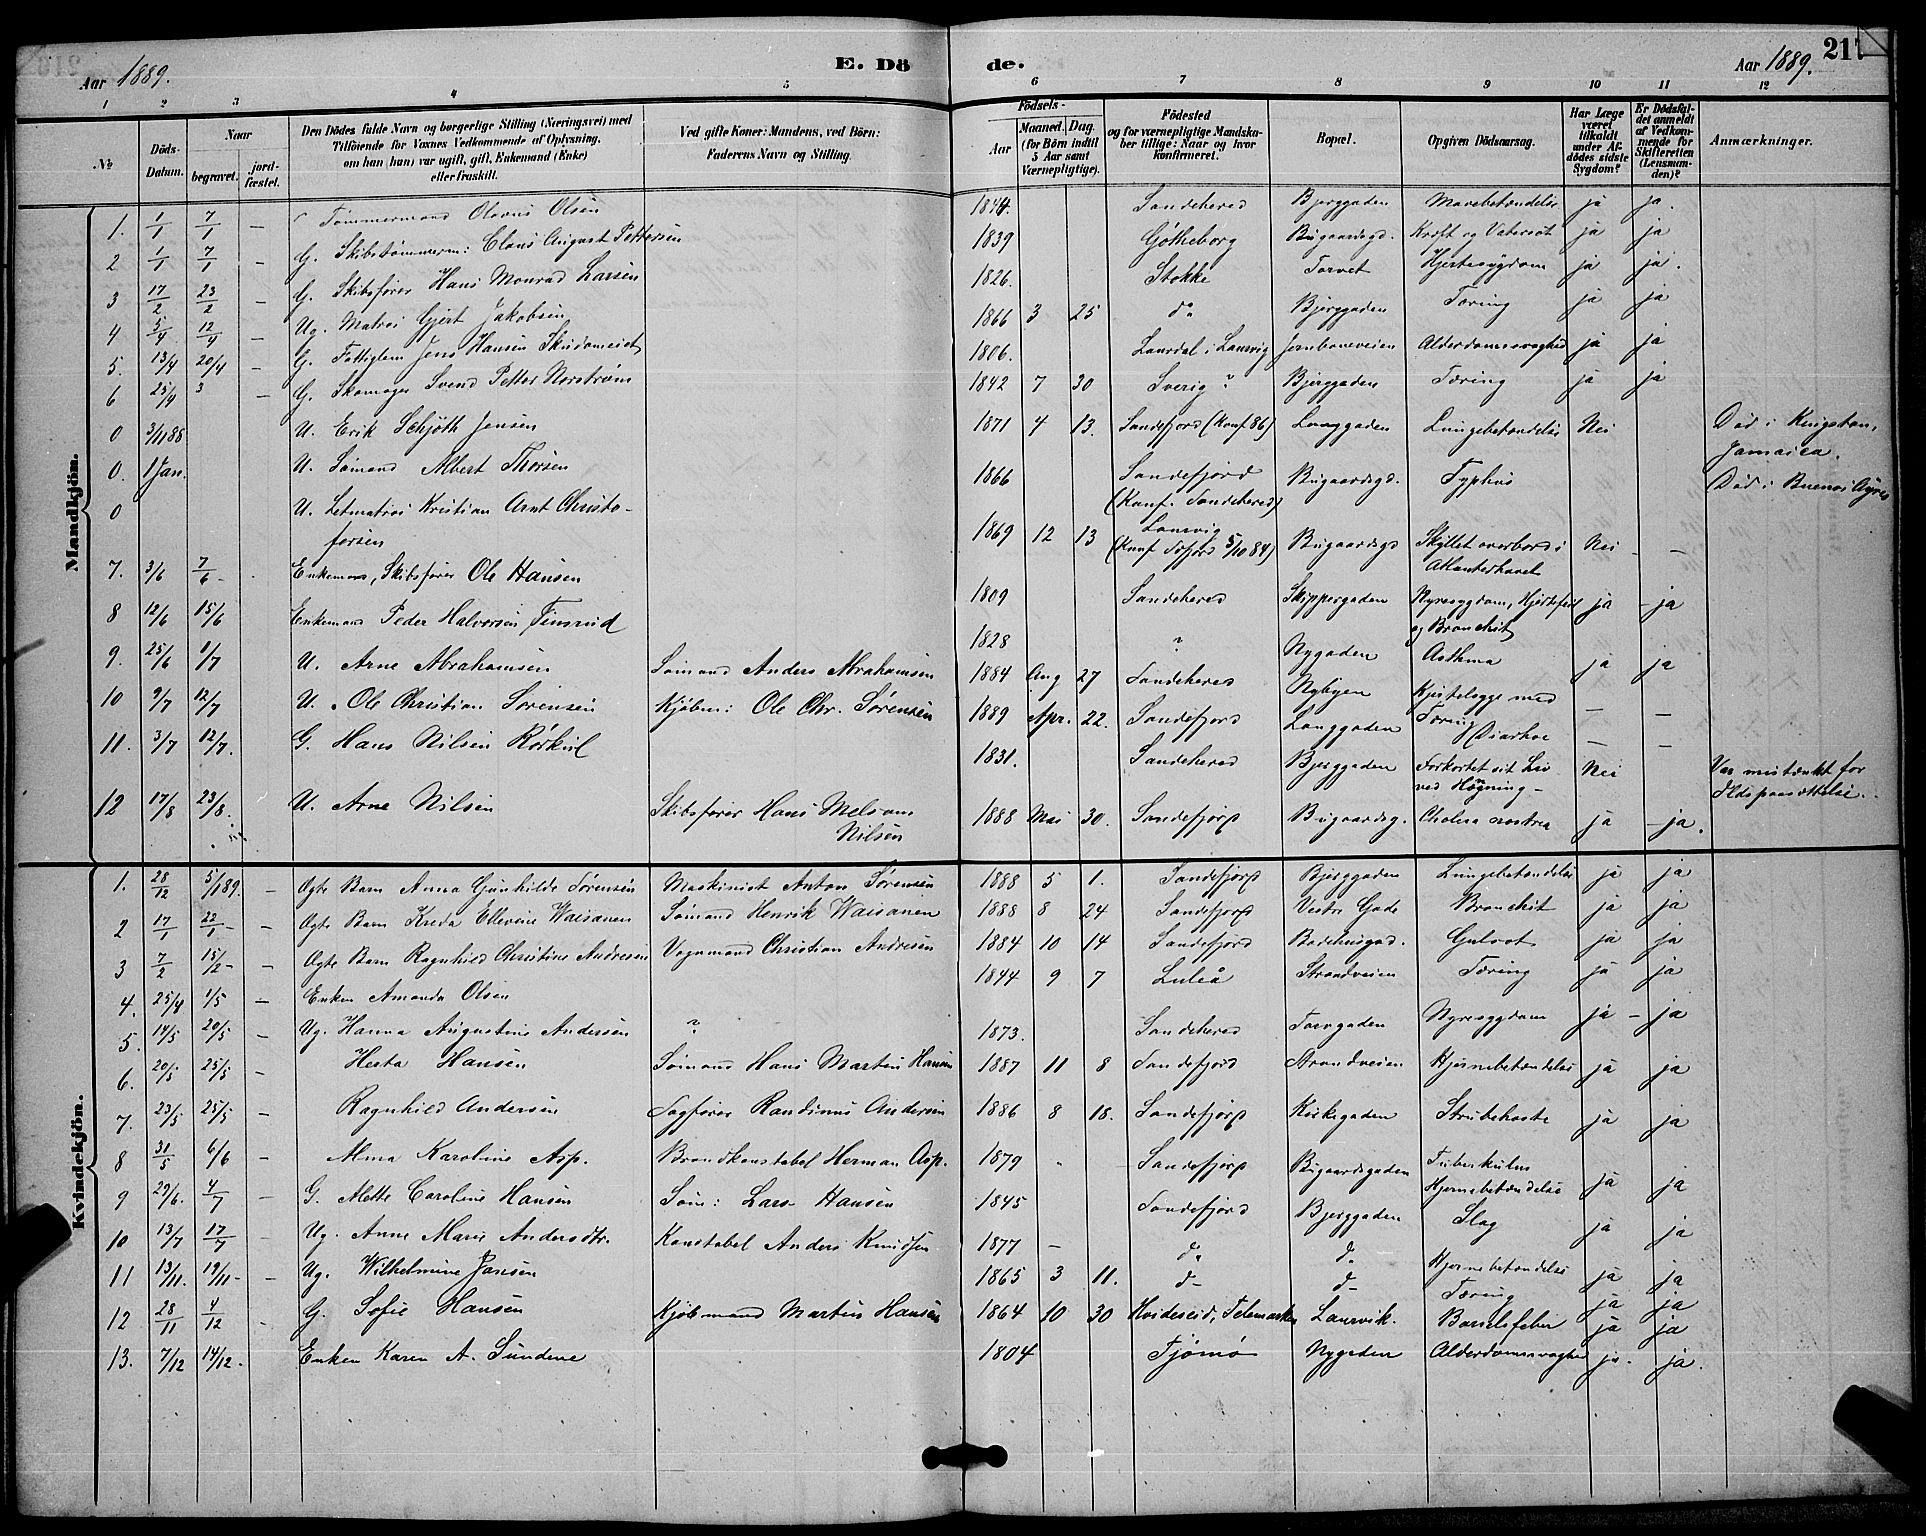 Aar 1889. E. Dö de. Aar 1889. 217
1 2 3 4 5 6 7 8 9 10 11 12
No Döds-Datum. Naar begravet. jordfæstet. Den Dödes fulde Navn og borgerlige Stilling (Næringsvei) med Tilföiende for Voxnes Vedkommende af Oplysning, om han (hun) var ugift, gift, Enkemand (Enke) eller fraskilt. Ved gifte Koner: Mandens, ved Börn: Faderens Navn og Stilling. Födsels- Aar Maaned. Dag. (for Börn indtil 5 Aar samt Værnepligtige). Födested og for værnepligtige Mandskaber tillige: Naar og hvor konfirmeret. Bopæl. Opgiven Dödsaarsag. Har Læge været tilkaldt under Afdödes sidste Sygdom? Er Dödsfaldet anmeldt af Vedkommende for Skifteretten (Lensmanden)? Anmærkninger.
Mandkjön.
1. 1/1 7/1 — Tømmermand Olavus Olsen 1844. Sandeherred Bjerggaden Mavebetændelse ja ja.
2 1/1 7/1 — G. Skibstømmerm: Claus August Pettersen 1839 Götheborg Bugaardsgd. Kræft og Vatersot ja ja
3 17/2 23/2 — G. Skibsfører Hans Monrad Larsen 1826. Stokke Torvet Hjertesygdom ja ja.
4 5/4 12/4 — Ug. Matros Gjert Jakobsen 1866 3 25 do Bjerggaden Tæring ja ja
5. 13/4 20/4 — G. Fattiglem Jens Hansen 1806. Laurdal i Laurvig Jernbaneveien Alderdomssvaghed ja ja
6 25/4 3 — G. Skomager Svend Petter Norström 1842 7 30 Sverig? Bjerggaden Tæring ja ja
0 3/11 88 U. Erik Schjöth Jensen 1871 4 13. Sandefjord (Konf 86) Langgaden Lungebetændelse Nei Död i Kingston, Jamaica.
0. 1 Jan. U. Sömand Albert Thorsen 1866 Sandefjord (Konf. Sandeherred) Bugaardsgd. Typhus Död i Buenos Ayres
0 U. Letmatros Kristian Arnt Christoforsen 1869 12 13 Laurvig (Konf Sefjord 5/10 84) Bugaardsgd Skyllet overbord i Atlanterhavet Nei — —
7. 3/6 7/6 - Enkemand, Skibsfører Ole Hansen 1809 Sandeherred Skippergaden Nyresygdom, Hjertefeil og Bronchit ja - ja
8 12/6 15/6 Enkemand Peder Halvorsen Finsrud 1828 ? Nygaden Asthma ja ja
9. 25/6 1/7 U. Arne Abrahamsen Sømand Anders Abrahamsen 1884 Aug 27 Sandeherred Nybyen Kjertelsyge med Tæring — —
10 9/7 12/7 U. Ole Christian Sörensen Kjøbm: Ole Chr. Sørensen 1889 Apr. 22. Sandefjord Langgaden Diarhoe — —
11. 3/7 12/7. G. Hans Nilsen Rørkul 1831. Sandeherred Bjerggaden Forkortet sit Liv ved Hængning — Nei Var mistænkt for Ildspaasættelse.
12 17/8 23/8. U. Arne Nilsen Skibsfører Hans Melsom Nilsen 1888 Mai 30. Sandefjord Bugaardsg. Cholera nostras ja - ja.
Kvindekjön.
1. 28/12 5/1 89. — Ægte Barn Anna Gunhilde Sörensen Maskinist Anton Sørensen 1888 5 1. Sandefjord Bjerggaden Lungebetændelse ja ja
2 17/1 22/1 - — Ægte Barn Kreda Ellevine Waisanen Sømand Henrik Waisanen 1888 8 24 Sandefjord Vestre Gade Bronchit ja ja
3 7/2 15/2 - — Ægte Barn Ragnhild Christine Andresen Vognmand Christian Andresen 1884 10 14 Sandefjord Badehusgad. Gulsot ja ja
4. 25/4 1/5 — Enken Amanda Olsen 1844 9 7 Luleå Strandveien Tæring ja ja
5. 14/5 20/5 — Ug. Hanna Augustine Andersen ? 1873. Sandeherred Torvgaden Nyresygdom ja - ja
6. 20/5 25/5 — Herta Hansen Sömand Hans Martin Hansen 1887 11 8 Sandefjord Strandveien Hjernebetændelse ja ja
7. 23/5 25/5 — Ragnhild Andersen Sagfører Randinus Andersen 1886 8 18. Sandefjord Kirkegaden Strubehoste ja ja
8 31/5 6/6 — Alma Karoline Asp. Brandkonstabel Herman Asp. 1879 " — Sandefjord Bugaardsgaden Tuberkulus Hjernebetændelse ja ja
9 29/6. 4/7 — G. Mette Caroline Hansen Søm: Lars Hansen 1845 Sandefjord Bjerggaden Slag ja ja
10 13/7 17/7 — Ug. Anne Marie Andersdtr. Konstabel Anders Knudsen 1877 — do do Hjernebetændelse ja ja
11 13/11. 19/11 - — Ug. Wilhelmine Jansen 1865 3 11. do do Tæring ja ja
12 28/11 4/12 — G. Sofie Hansen Kjøbmand Martin Hansen 1864 10 30 Hvideseid, Telemarken Laurvik. Barselfeber ja ja
13. 7/12 14/12 - Enken Karen A. Sundene 1804 Tjømø Nygaden Alderdomssvaghed ja. ja.